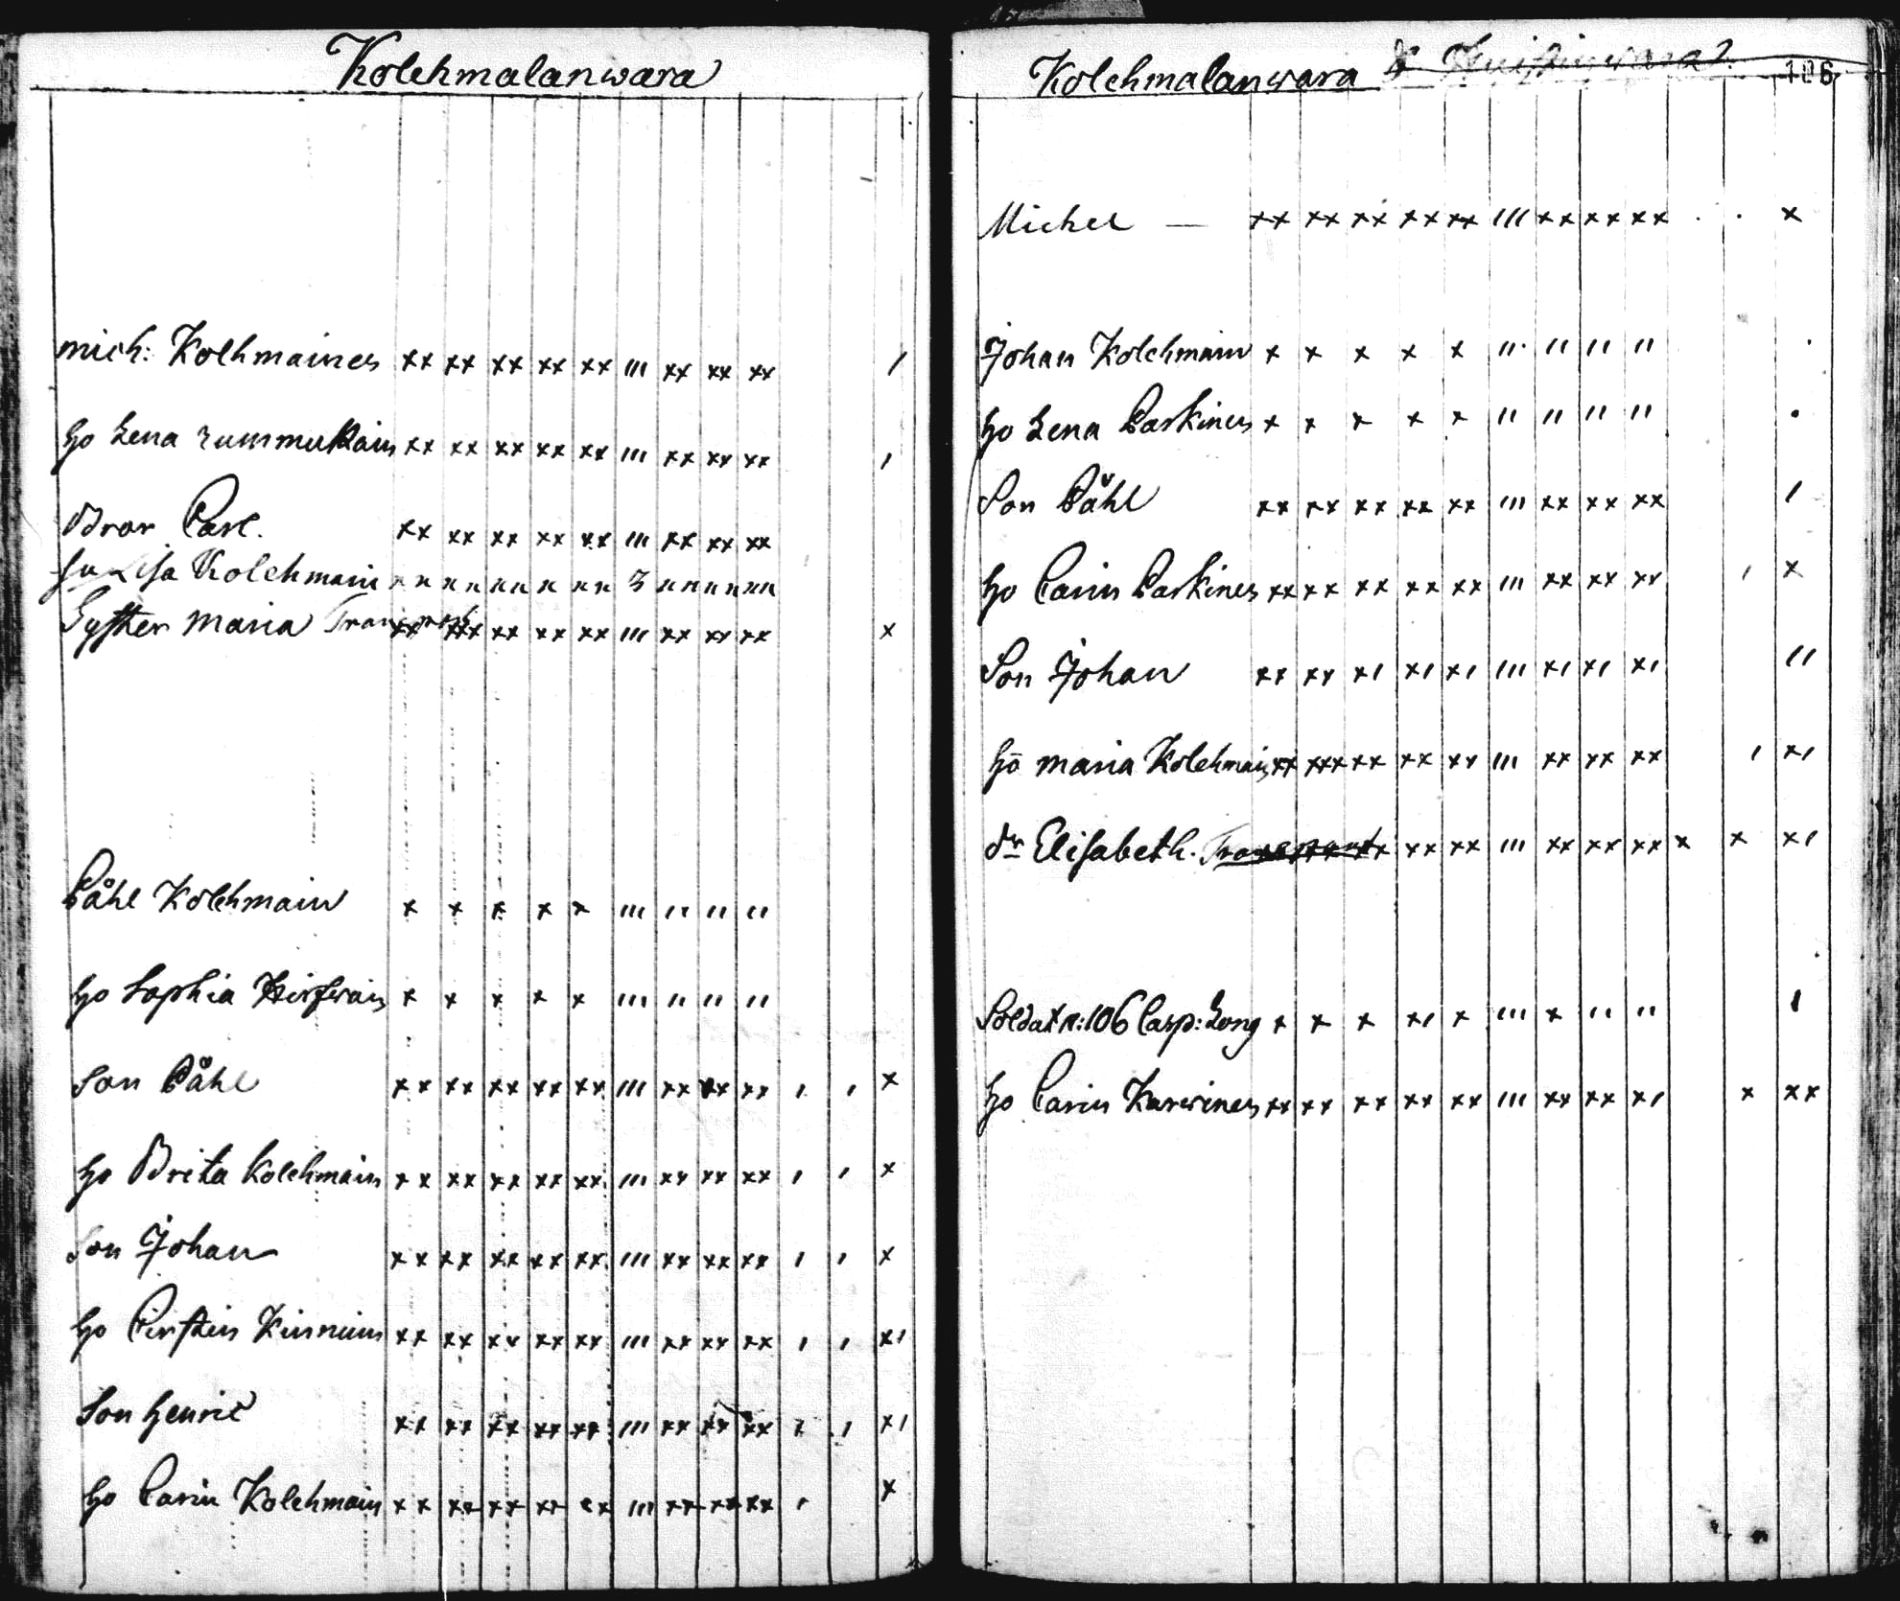 Kolehmalanwara
mich: Kolhmaines xx xx xx xx xx ııı xx xx xx ı
ho Lena rummukain xx xx xx xx xx ııı xx xx xx ı
Bror Carl. xx xx xx xx xx ııı xx xx xx
Lisa Kolehmain
Syster Maria Transport xx xxx xx xx xx ııı xx xx xx x
Påhl Kolehmain x x x x x ııı ıı ıı ıı
ho Sophia Hirfwain x x x x x ııı ıı ıı ıı
Son Påhl xx xx xx xx xx ııı xx xx xx ı ı x
ho Brita Kolehmain xx xx xx xx xx ııı xx xx xx ı ı x
Son Johan xx xx xx xx xx ııı xx xx xx ı ı x
ho Cirstin Kinnuin xx xx xx xx xx ııı xx xx xx ı ı xı
Son Henric xx xx xx xx xx ııı xx xx xx ı ı xı
ho Carin Kolehmain xx xx xx xx xx ııı xx xx xx ı x
Kolehmalanwara 106
Michel — xx xx xx xx xx ııı xx xx xx . . x
Johan Kolehmain x x x x x ıı ıı ıı ıı .
ho Lena Parkines x x x x x ıı ıı ıı ıı .
Son Påhl xx xx xx xx xx ııı xx xx xx ı
ho Carin Parkines xx xx xx xx xx ııı xx xx xx ı x
Son Johan xx xx xı xı xı ııı xı xı xı ıı
ho maria Kolehmain xx xxx xx xx xx ııı xx xx xx ı xı
dr Elisabeth. Transport xx xx ııı xx xx xx x x xı
Soldat n:106 Casp: Long x x x xı x ııı x ıı ıı ı
ho Carin Karvines xx xx xx xx xx ııı xx xx xı x xx